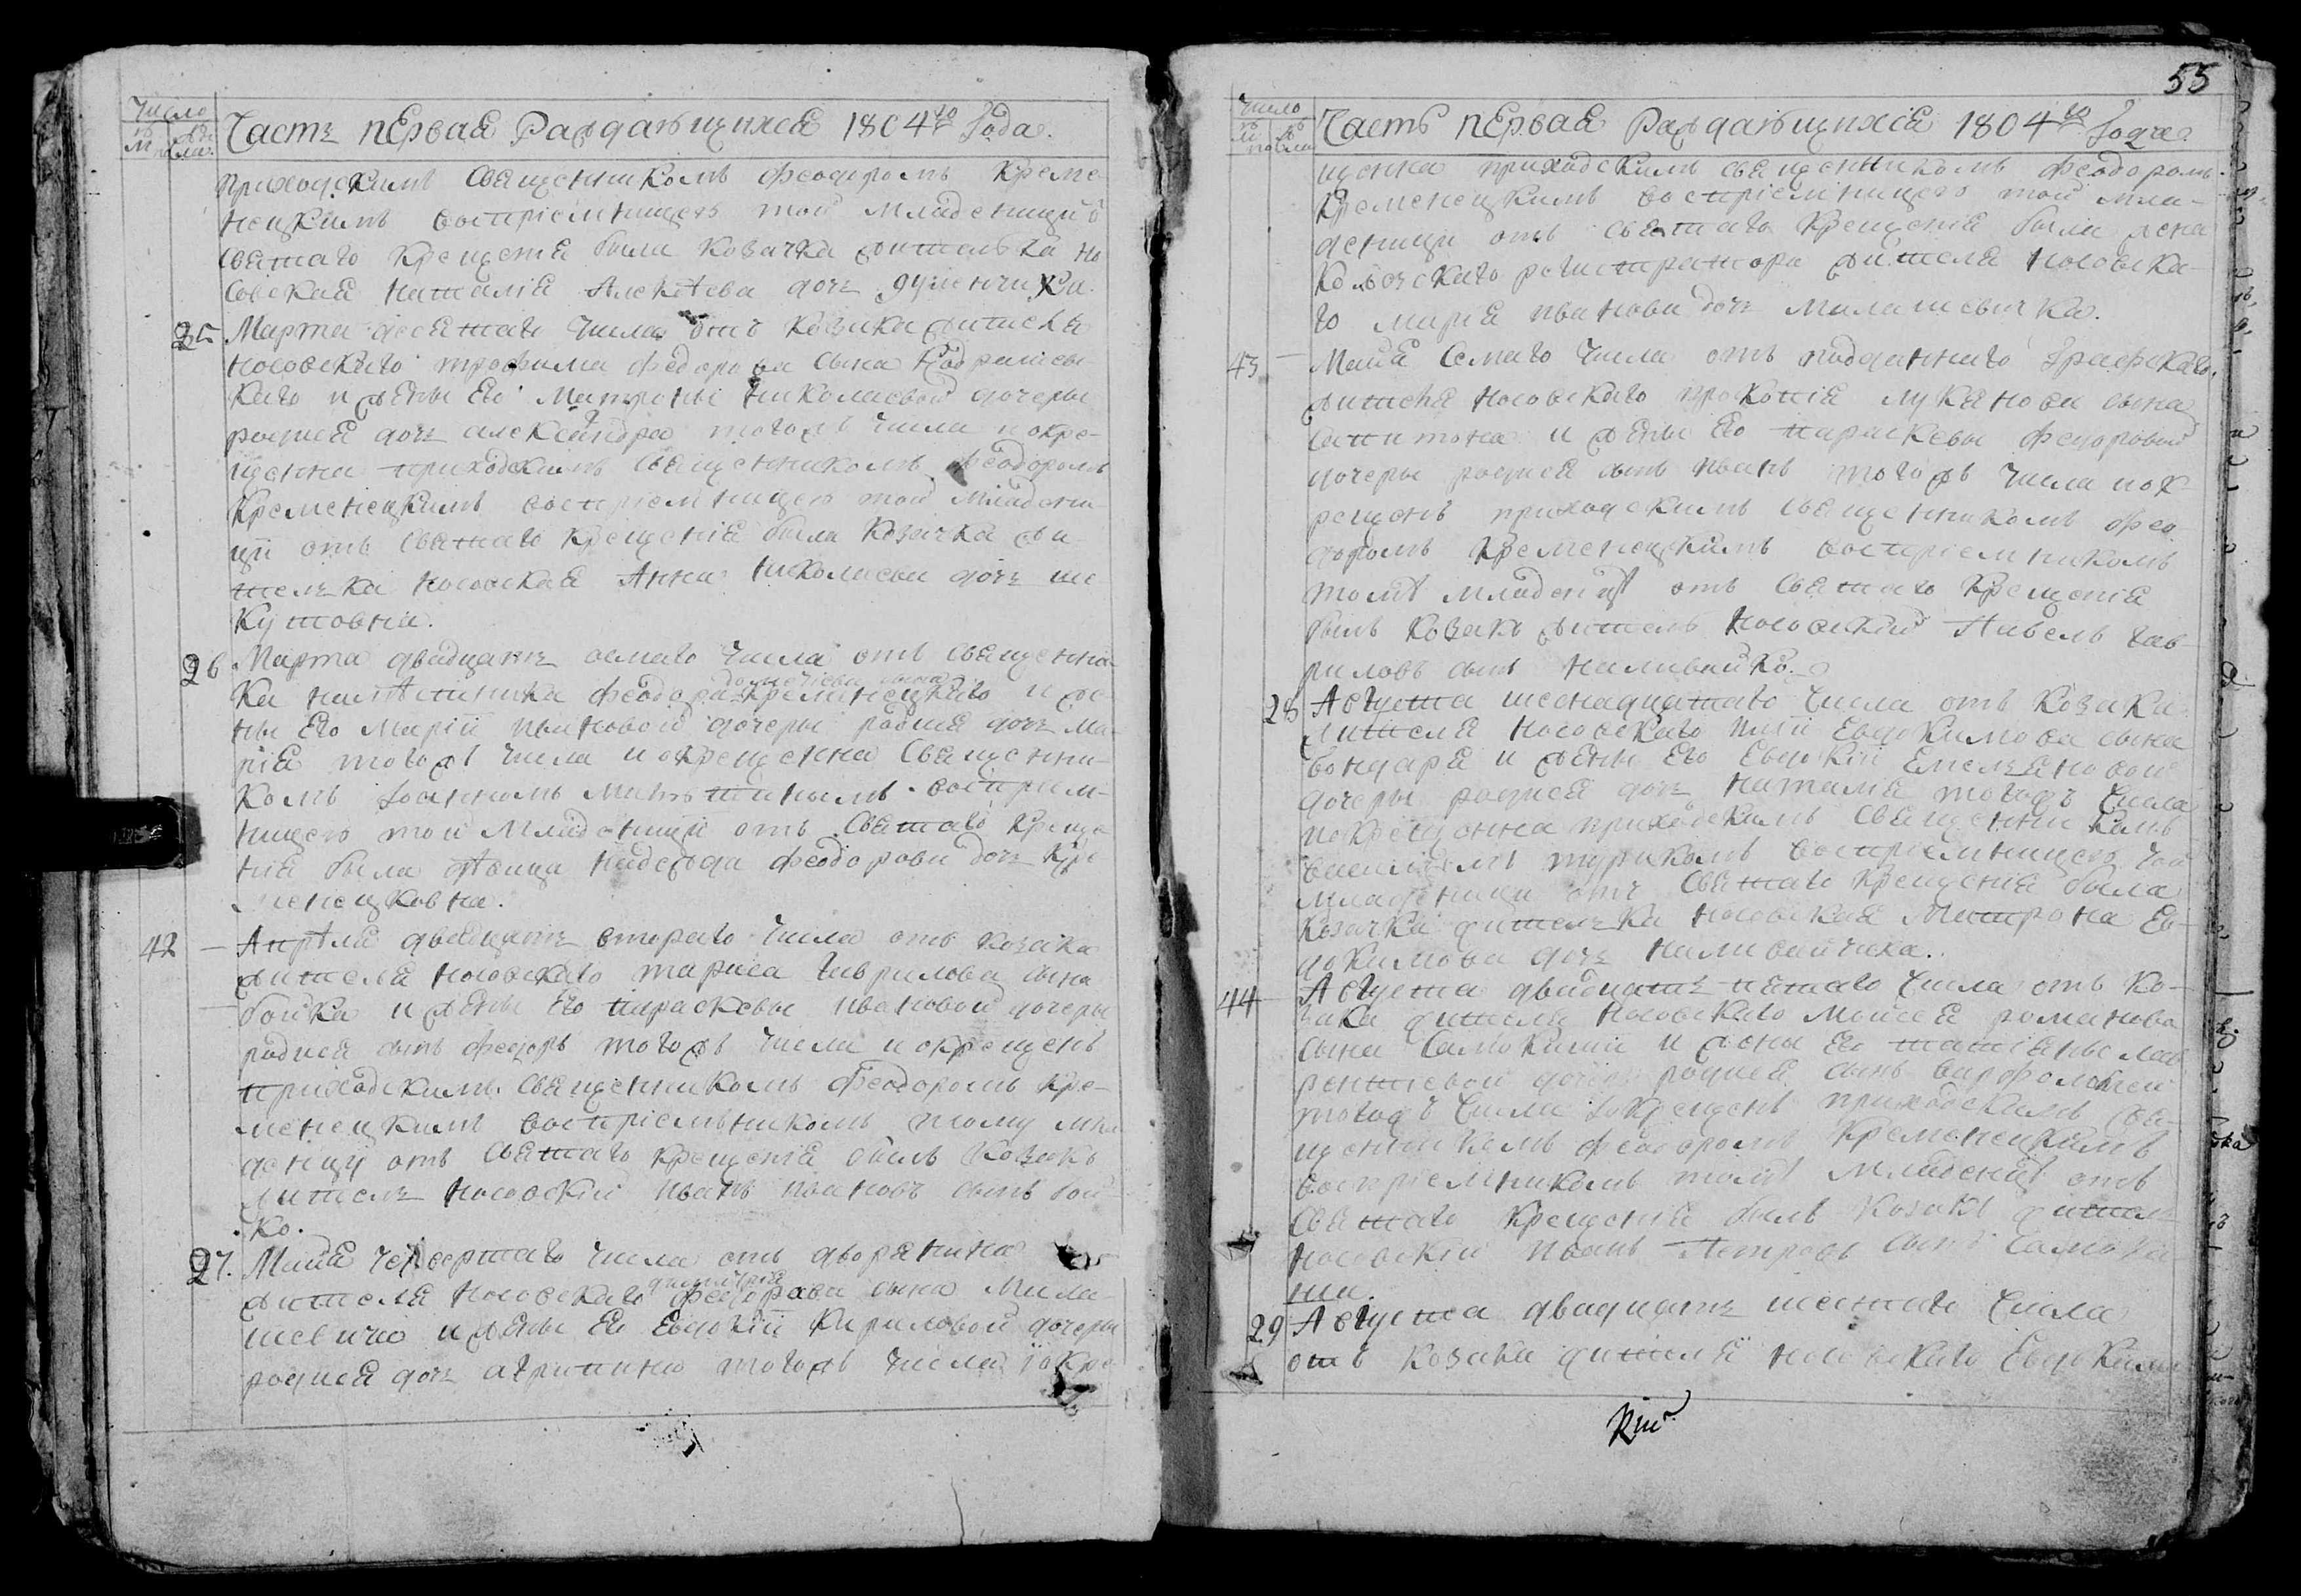 Число
м. п. жен. пола.
Часть первая Раждавшихся 1804го Года.
приходскимъ Священникомъ Феодоромъ Креме-
нецкимъ восприемницею той младеницы ѿ
Святаго Крещения была Козачка жителька но
совская Наталія Алексѣева дочь
25 Марта десятаго числа отъ Козака жителя
носовского трофима Федорова сына
каго и жены его Матроны Николаевой дочеры
родися дочь александра тогожъ числа и окре-
щенна приходскимъ Священникомъ Феодоромъ
Кременецкимъ восприемницею той младени-
цы отъ Святаго Крещения была Козачка жи
телька носовская Анна Николаева дочь ше
кутовна.
26 Марта двадцять осмаго числа отъ Священни
ка намѣстника Феодора Кременецкого и же-
ны его Маріи Ивановой дочеры родися дочь Ма-
рія тогожъ числа и окрещенна Священни-
комъ Іоанномъ восприем-
ницею той младеницы отъ Святаго Креще
ния была дѣвица надежда Феодорова дочь Кре
менецковна.
42 Апрѣля двадцять второго числа отъ козака
жителя носовского тараса Гаврилова сына
бойка и жены его параскевы Ивановой дочеры
родися сынъ Федоръ тогожъ числа и окрещенъ
приходскимъ Священникомъ Феодоромъ Кре-
менецкимъ восприемникомъ тому мла
денцу отъ Святаго Крещения былъ Козакъ
житель носовский Иванъ Ивановъ сынъ бой-
ко.
27. Маия четвертаго числа отъ дворянина
димитрія
жителя носовского Федорова сына Мила-
шевича и жены его Евдокіи Кириловой дочеры
родися дочь агрипина тогожъ числа и окре
55
Число
м. п. жен. пола
Часть первая Раждавшихся 1804го Года
щенна приходскимъ священникомъ Феодоромъ
Кременецкимъ восприемницею той мла-
деницы отъ Святаго Крещения была жена
Колѣжскаго регистратора жителя носовска-
го Марія Иванова дочь Милашевичка.
43 Маия Семаго числа отъ подданнаго Графскаго
жителя носовского прокопія лукянова сына
сапитона и жены его параскевы Федоровой
дочеры родися сынъ Иванъ тогожъ числа и ок
рещенъ приходскимъ Священникомъ Фео
доромъ Кременецкимъ восприемникомъ
томъ младенцѣ отъ Святаго Крещения
былъ Козакъ житель носовский Павелъ Гав-
риловъ сынъ наливайко.
28 Августа шеснадцятаго числа отъ Козака
жителя носовского Ильи Евдокимова сына
бондаря и жены его Евдокіи Емельяновой
дочеры родися дочь наталія тогожъ числа
и окрещенна приходскимъ Священникомъ
василиемъ туркомъ восприемницею той
младеницы отъ Святаго Крещения была
Козачка жителька носовская Матрона Ев-
докимова дочь наливайчиха.
44 Августа двадцять пятаго числа отъ Ко-
зака жителя носовского Мойсея романова
сына самокиши и жены его татіаны лав
рентиевой дочеры родися сынъ варфоломей
тогожъ числа и окрещенъ приходскимъ Свя-
щенникомъ Феодоромъ Кременецкимъ
восприемникомъ томъ младенцѣ отъ
Святаго Крещения былъ Козакъ житель
носовский Иванъ Петровъ сынъ самоки
ша.
29 Августа двадцять шестаго числа
отъ козака жителя носовского Евдокима